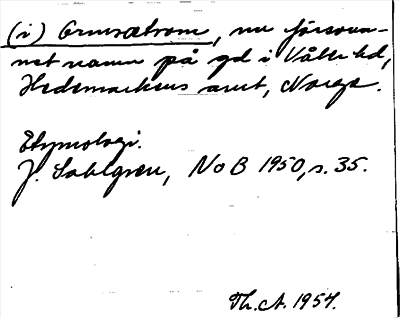 (i) Ormsætrom, nu försvun-
net namn på gd i Våler hd,
Hedemarkens amt, Norge.
Etymologi.
J. Sahlgren, NoB 1950, s. 35.
Th. A. 1954.